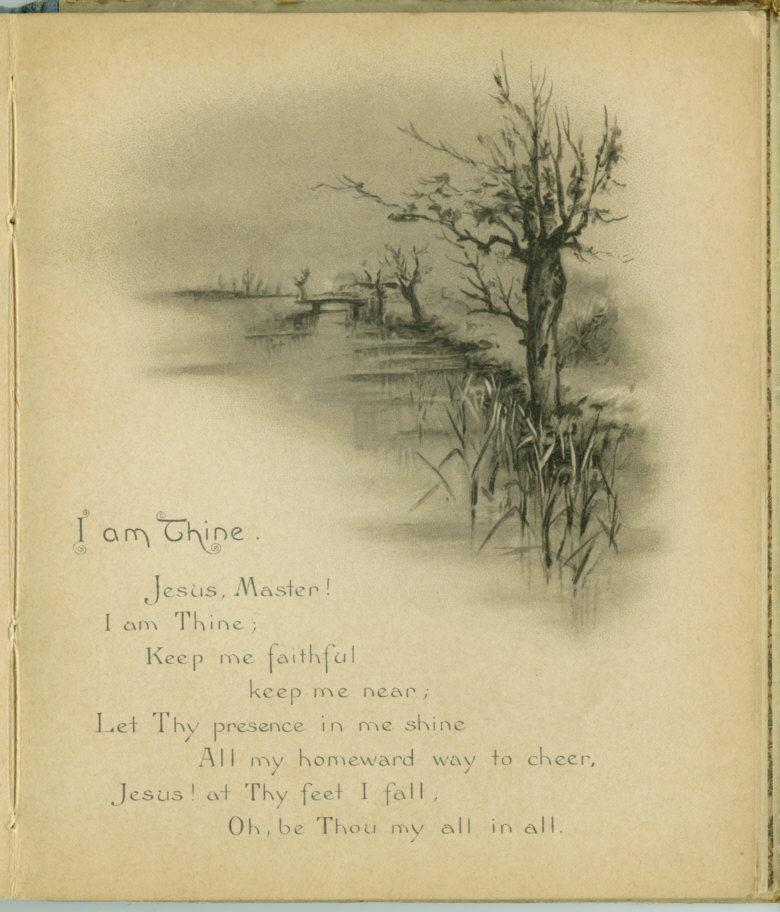 I am Thine.
Jesus, Master!
I am Thine;
Keep me faithful
keep me near;
Let Thy presence in me shine
All my homeward way to cheer,
Jesus! at Thy feet I fall,
Oh, be Thou my all in all.